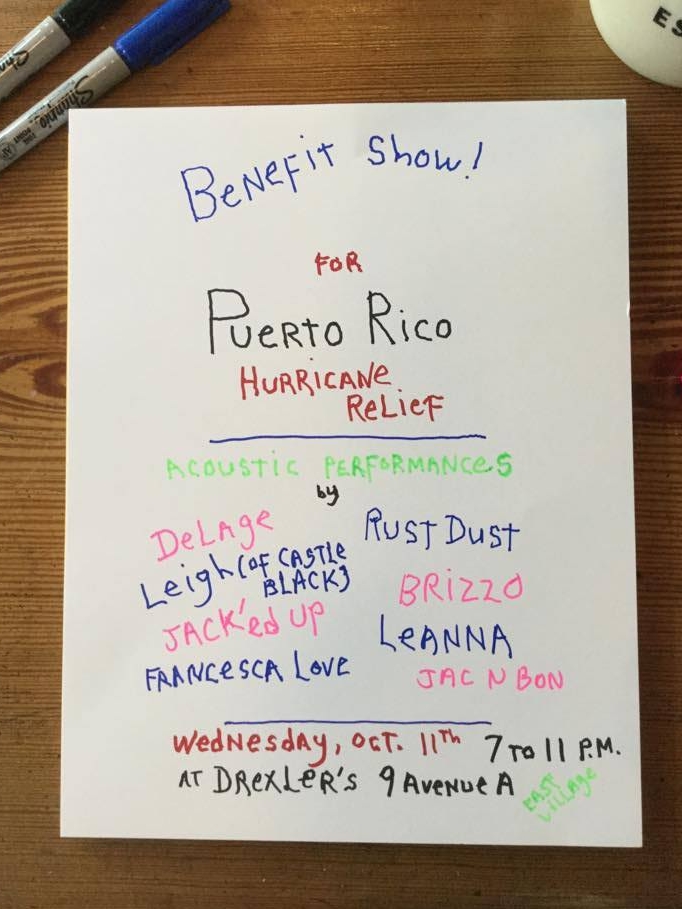 Sharpie
ES
BeNeFit Show!
FOR
PUERTO RICO
HURRICANe
ReLieF
ACOUSTIC PERFORMANCeS
by
DeLAge
RUST DUST
Leigh (OF CASTLe
BLACK)
BRiZZO
JACK'ed UP
LeANNA
FRANCeSCA LOVe
JAC N BON
WedNesdAy, OCT. 11Th 7 TO 11 P.M.
AT DRexLeR'S 9 AveNUe A
EAST
VillAge